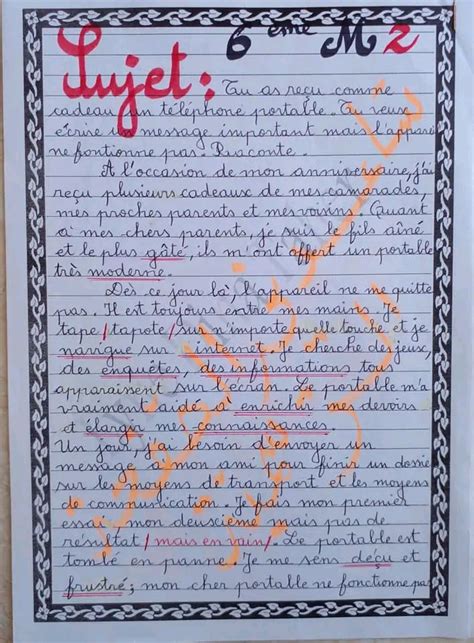 6 eme M2
Sujet : Tu as reçu comme
cadeau un téléphone portable. Tu veux
écrire un message important mais l'appareil
ne fontionne pas. Raconte.
À l'occasion de mon anniversaire, j'ai
reçu plusieurs cadeaux de mes camarades,
mes proches parents et mes voisins. Quant
à mes chers parents, je suis le fils aîné
et le plus gâté, ils m'ont offert un portable
très moderne.
Dès ce jour là, l'appareil ne me quitte
pas. Il est toujours entre mes mains. Je
tape/tapote/sur n'importe quelle touche et je
narrgue sur internet. Je cherche de jeux,
des enquêtes, des informations tous
apparaissent sur l'écran. Le portable m'a
vraiment aidé à enrichir mes devoirs
et élargir mes connaissances.
Un jour, j'ai besoin d'envoyer un
message à mon ami pour finir un dossier
sur les moyens de transport et les moyens
de communication. Je fais mon premier
essai, mon deuxième mais pas de
résultat/mais en vain/. Le portable est
tombé en panne. Je me sens déçu et
frustré ; mon cher portable ne fonctionne pas